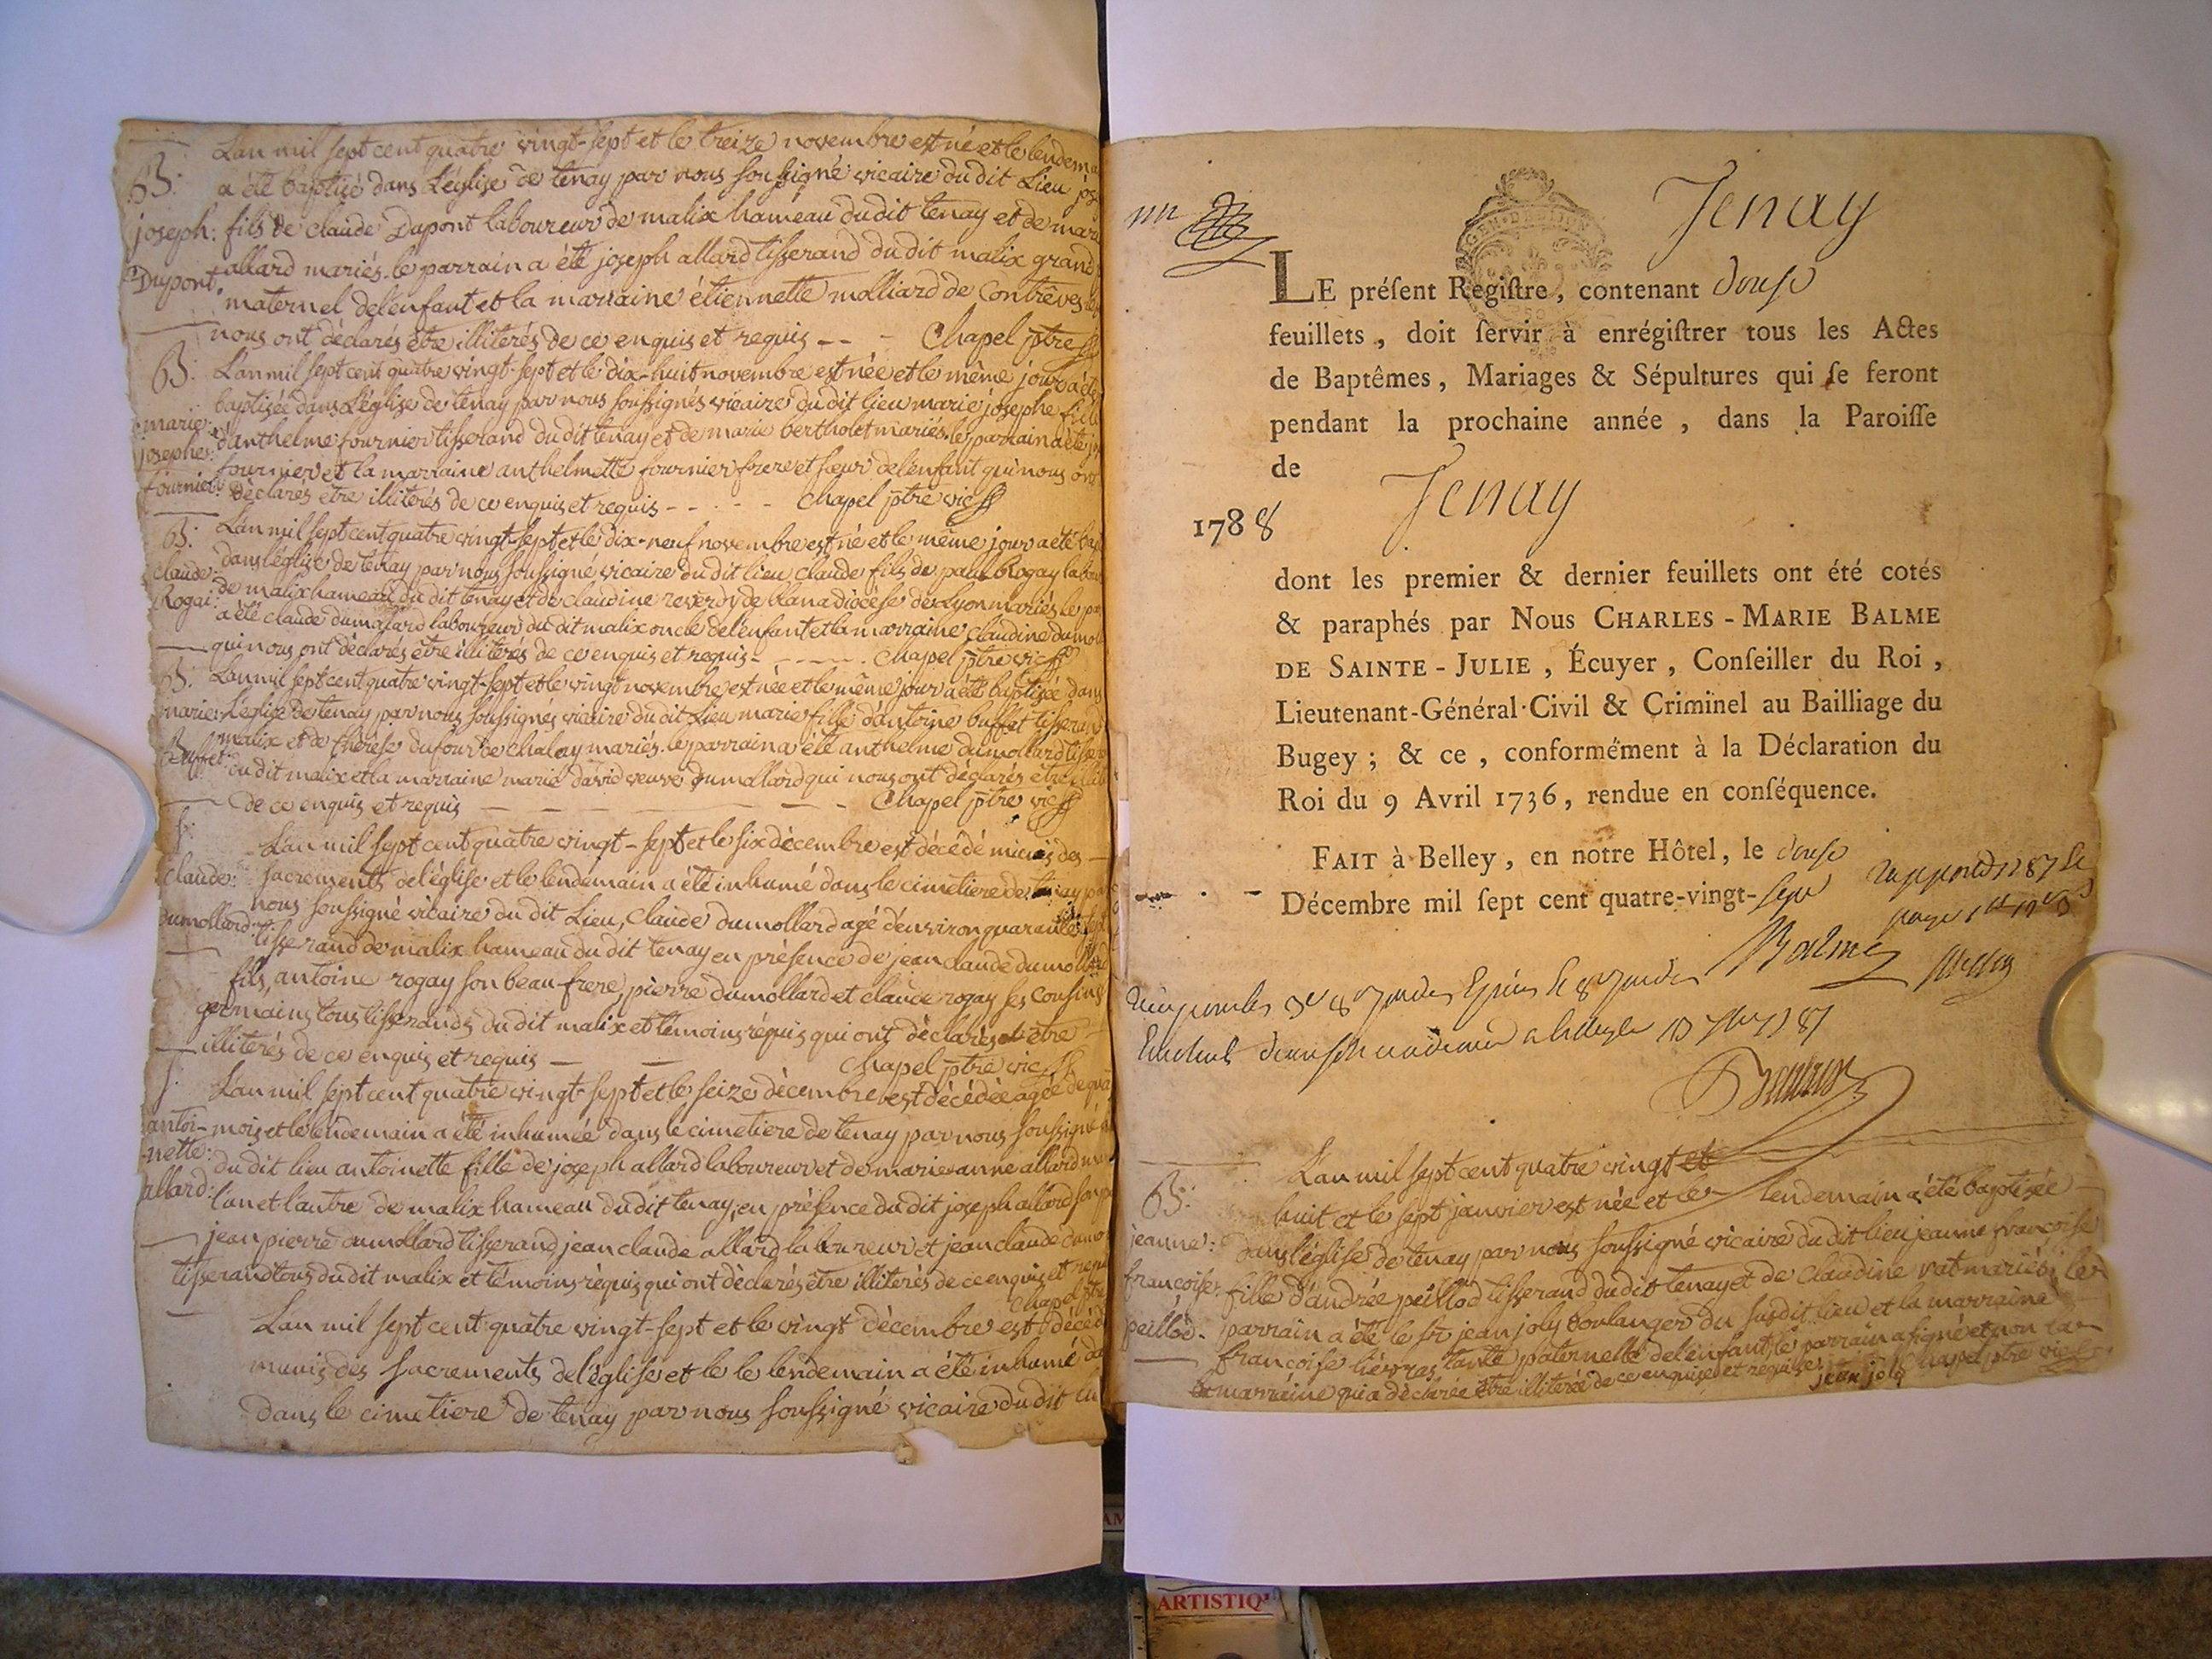 Lan mil sept cent quatre vingt-sept et le treize novembre est né et le lendem
B. a été baptisé dans L'église de tenay par nous soussigné vicaire du dit Lieu jos
joseph: fils de claude Dupont laboureur de malix hameau dudit tenay et de mari
Dupont allard mariés. le parrain a été joseph allard tisserand du dit malix grand
maternel de lenfant et la marraine étiennette molliard de Contrêves
nous ont déclarés être illiterés de ce enquis et requis -- - Chapel ptre
B. Lan mil sept cent quatre vingt-sept et le dix-huit novembre est née et le même jour a été
baptisée dans L'église de tenay par nous soussignés vicaire du dit lieu marie josephe fille
marie danthelme fournier tisserand du dit tenay et de marie bertholet mariés. le parrain a été jo
josephe: fournier et la marraine anthelmette fournier frere et sœur de lenfant qui nous ont
fournier: déclarés être illiterés de ce enquis et requis - - - - - Chapel ptre vic
B. Lan mil sept cent quatre vingt-sept et le dix-neuf novembre est né et le même jour a été bap
claude: dans léglise de tenay par nous soussigné vicaire du dit lieu claude fils de paul Rogay labou
Rogai: de malix hameau du dit tenay et de claudine reverdy de diocèse de Lyon mariés le par
a été claude dumollard laboureur du dit malix oncle de lenfant et la marraine claudine dumol
qui nous ont déclarés être illiterés de ce enquis et requis - - - - - Chapel ptre vic
B. Lan mil sept cent quatre vingt-sept et le vingt novembre est née et le même jour a été baptisée dans
marie: L'église de tenay par nous soussignés vicaire du dit Lieu marie fille d'antoine buffet tisserand
Buffet: malix et de thérèse dufour de chaley mariés. le parrain a été anthelme dumollard tisser
du dit malix et la marraine marie david veuve dumollard qui nous ont déclarés être illit
de ce enquis et requis - - - - Chapel ptre vic
S. Lan mil sept cent quatre vingt-sept et le six décembre est décédé munis des
claude: sacrements de l'église et le lendemain a été inhumé dans le cimetiere de tenay par
nous soussigné vicaire du dit Lieu, claude dumollard agé d'environ quarante sept
dumollard: tisserand de malix hameau du dit tenay en présence de jean claude dumollard
fils, antoine rogay son beau-frere, pierre dumollard et claude rogay ses cousins
germains tous tisserands du dit malix et témoins réquis qui ont déclarés être
illiterés de ce enquis et requis — — Chapel ptre vic
S. Lan mil sept cent quatre vingt-sept et le seize décembre est décédée agée de quat
antoi- mois et le lendemain a été inhumée dans le cimetiere de tenay par nous soussigné
-nette: du dit lieu antoinette fille de joseph allard laboureur et de marie anne allard ma
allard: l'un et l'autre de malix hameau du dit tenay, en présence du dit joseph allard son pe
jean pierre dumollard tisserand jean claude allard laboureur et jean claude dumo
tisserand tous du dit malix et témoins réquis qui ont déclarés être illiterés de ce enquis et requi
Chapel ptre
Lan mil sept cent quatre vingt-sept et le vingt décembre est décéd
munis des sacrements de l'église et le le lendemain a été inhumé
dans le cimetiere de tenay par nous soussigné vicaire du dit lie
Tenay
GEN. DE DIJON
LE préſent Regiſtre, contenant douse
feuillets, doit ſervir à enrégiſtrer tous les Actes
de Baptêmes, Mariages & Sépultures qui ſe feront
pendant la prochaine année, dans la Paroiſſe
de Tenay
1788
dont les premier & dernier feuillets ont été cotés
& paraphés par Nous CHARLES-MARIE BALME
DE SAINTE-JULIE, Écuyer, Conſeiller du Roi,
Lieutenant-Général-Civil & Criminel au Bailliage du
Bugey ; & ce, conformément à la Déclaration du
Roi du 9 Avril 1736, rendue en conſéquence.
FAIT à Belley, en notre Hôtel, le douse
Décembre mil ſept cent quatre-vingt-sept
Balme
Lan mil sept cent quatre vingt et
B. huit et le sept janvier est née et le lendemain a été baptisée
jeanne: dans léglise de tenay par nous soussigné vicaire du dit lieu jeanne francoise
francoise: fille d'andrée peillod tisserand du dit tenay et de Claudine vat mariés; le
peillod. parrain a été le sr jean joly boulanger du susdit lieu et la marraine
francoise tante paternelle de lenfant le parrain a signé et non la
marraine qui a déclarée être illiterée de ce enquise et requise. jean joly Chapel ptre vic
ARTISTIQ